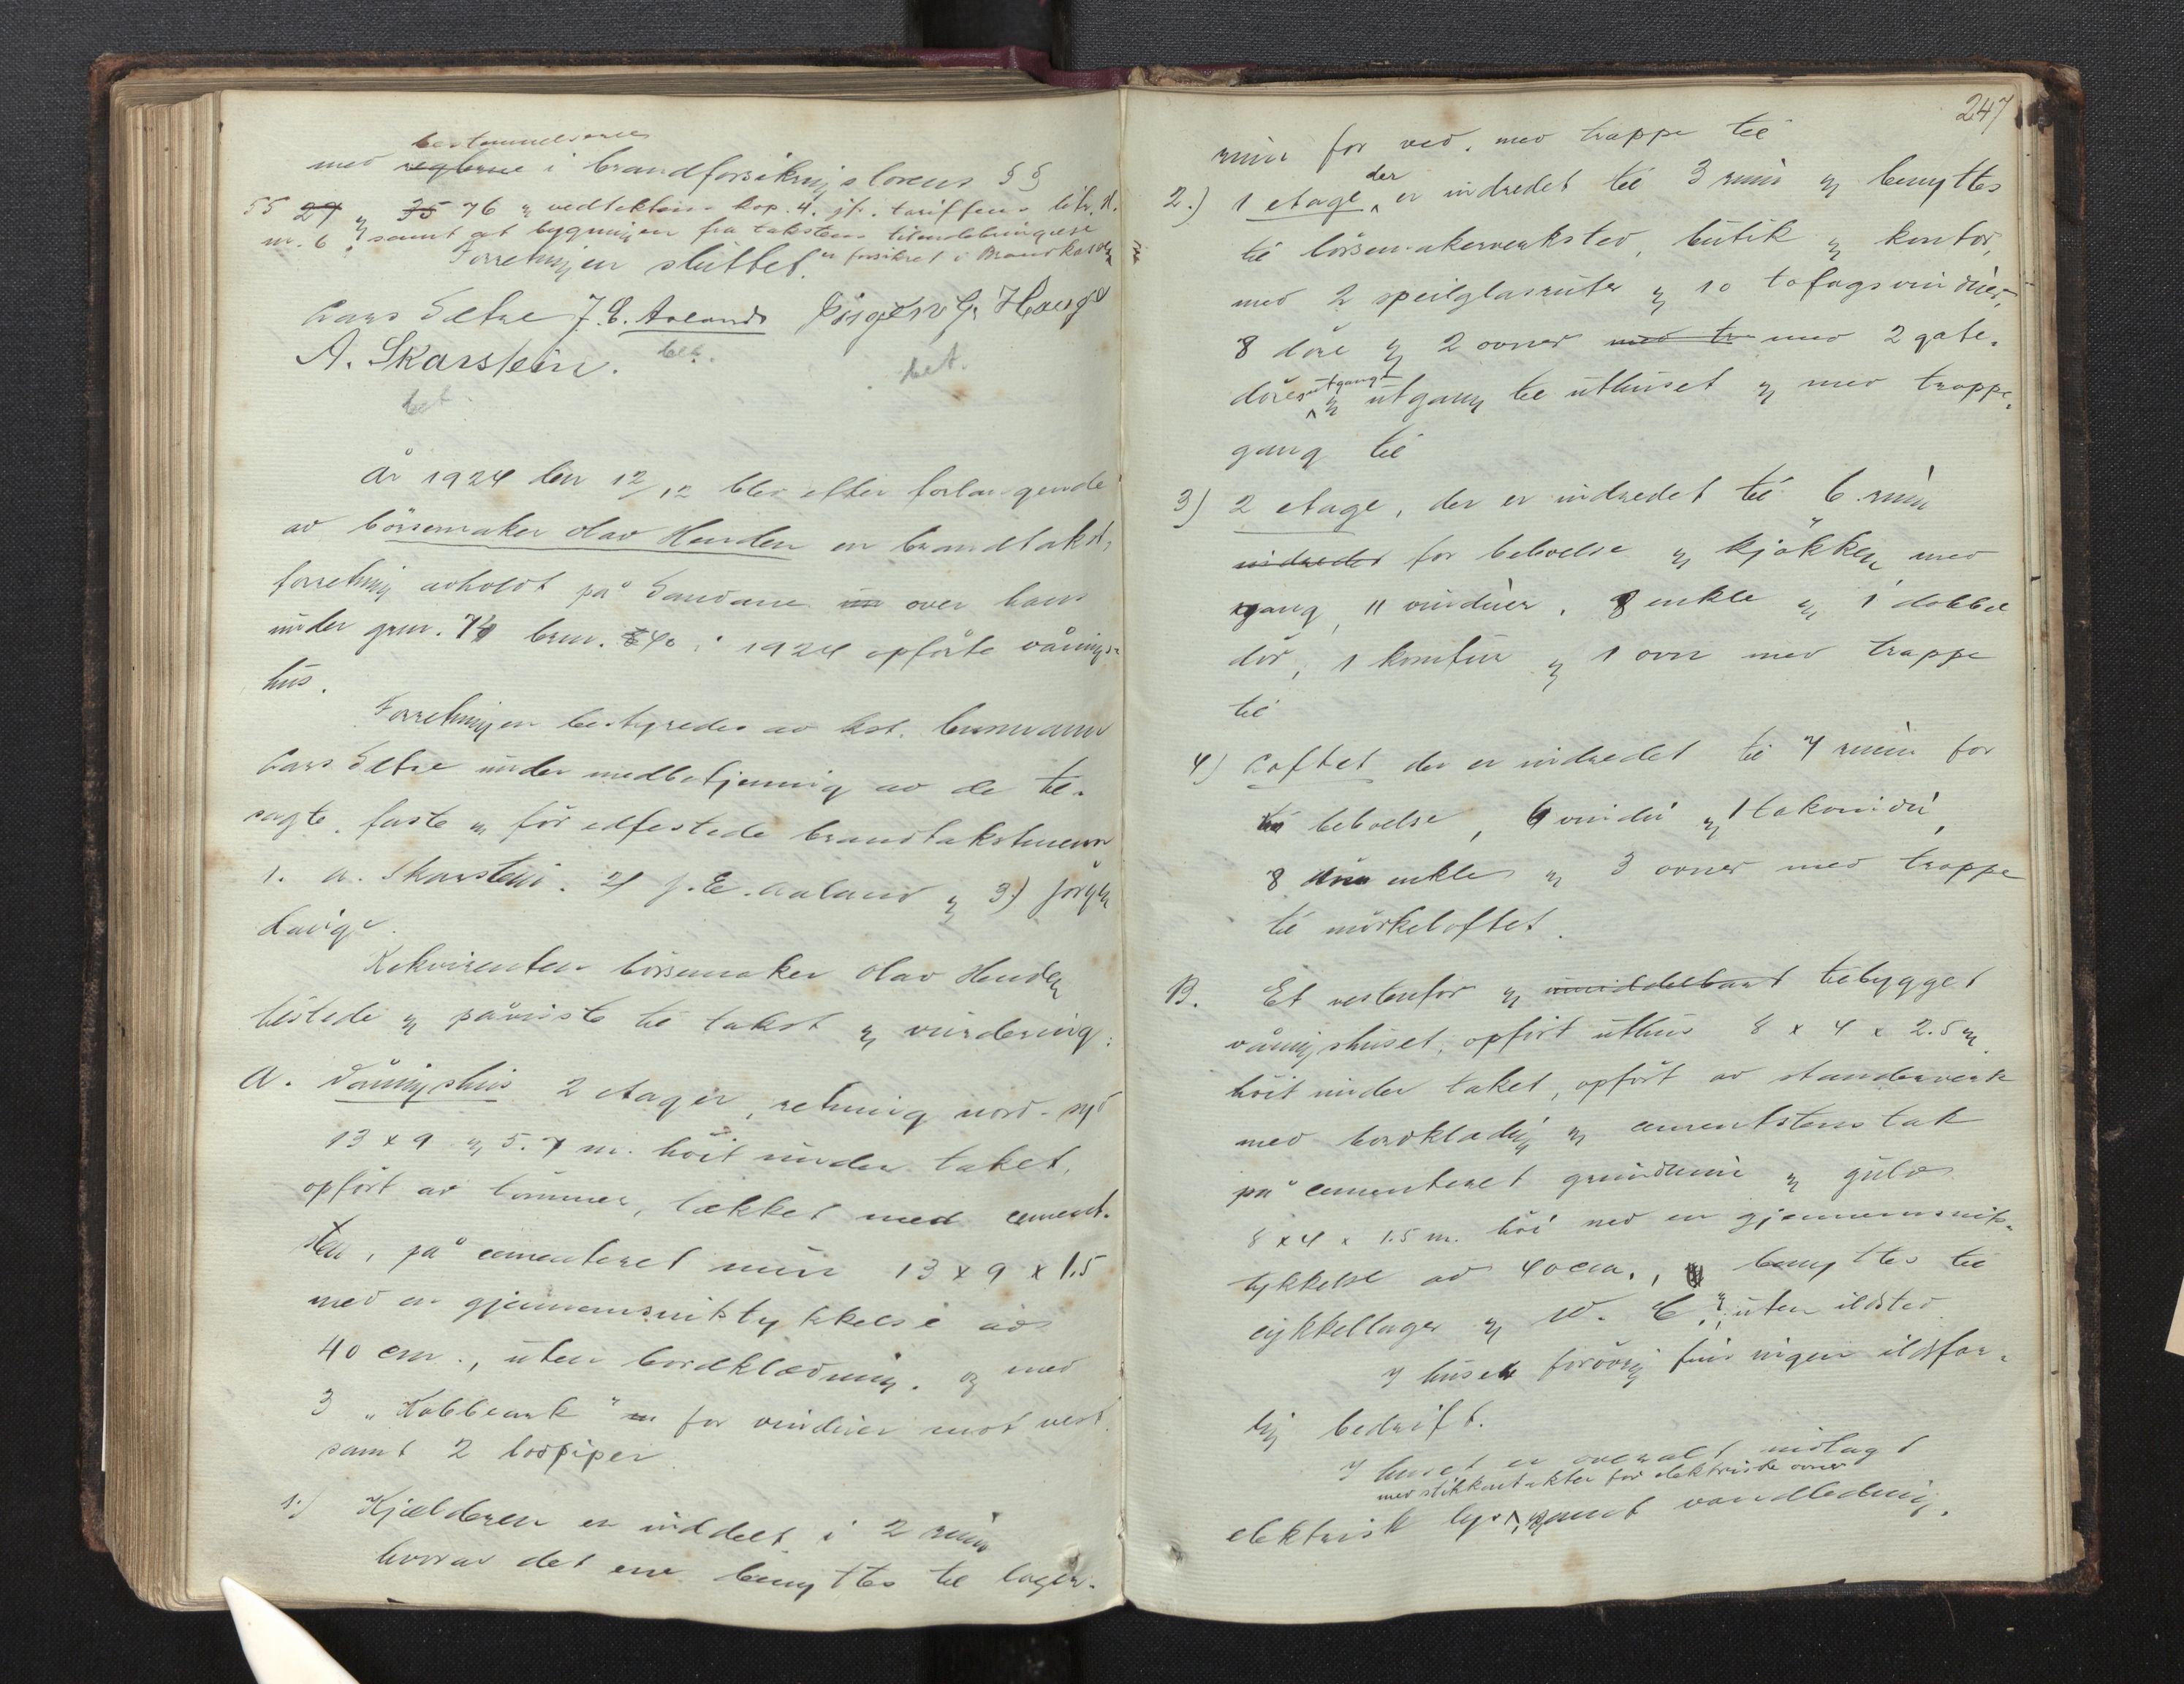 bestemmelserne
med reglerne i brandforsikringslovens §§
55 27 og 35 76 og vedtektens kap. 4. jfr. tariffens litr. H.
nr. 6. samt at bygningen fra takstens tilendebringelse
Forretningen sluttet. er forsikret i Brandkassen
Lars Sætre J. E. Aaland Jörgen G. Hauge
A. Skarstein. bet. bet.
bet.
År 1924 den 12/12 blev efter forlangende
av börsemaker Olav Henden en brandtakst-
forretning avholdt på Sandane over hans
under grnr. 74 brnr. 40 i 1924 opförte vånings-
hus.
Forretningen bestyredes av kst. lensmann
Lars Sætre under medbetjening av de til-
sagte, faste og för edfestede brandtakstmenn
1. A. Skarstein. 2) J. E. Aaland og 3) Jörgen
Hauge.
Rekvirenten börsemaker Olav Henden
tilstede og påviste til takst og vurdering:
A. Våningshus 2 etager, retning nord-syd
13 x 9 og 5.7 m. höit under taket,
opfört av tömmer, tækket med cement-
sten, på cementeret mur 13 x 9 x 1.5
med en gjennemsnitstykkelse av
40 cm., uten bordklædning. og med
3 "Kobbeark" for vinduer mot vest.
samt 2 lodpiper
1.) Kjælderen er inddelt i 2 rum
hvorav det ene benyttes til lager-
247
rum for ved, med trappe til
2.) 1 etage der er indredet til 3 rum og benyttes
til börsemakerverksted, butik og kontor,
med 2 speilglasruter og 10 tofagsvinduer,
8 döre og 2 ovner med tr med 2 gate-
döres utgang og utgang til uthuset og med trappe-
gang til
3) 2 etage, der er indredet til 6 rum
indredet for beboelse og kjökken med
gang, 11 vinduer, 8 enkle og 1 dobbel
dör, 1 komfur og 1 ovn med trappe
til
4) Loftet der er indredet til 7 rum for
til beboelse, 6 vindu og 1 takvindu,
8 döre enkle og 3 ovner med trappe
til mörkeloftet.
B. Et vestenfor og umiddelbart tilbygget
våningshuset, opfört uthus 8 x 4 x 2.5 m.
höit under taket, opfört av standerverk
med bordklædning og cementstens tak
på cementeret grundmur og gulv
8 x 4 x 1.5 m. höi med en gjennemsnits-
tykkelse av 40 cm., benyttes til
cykkellager og W. C., uten ildsted
I huset forövrig fins ingen ildsfar-
lig bedrift.
I huset er overalt indlagt
med stikkontakter for elektriske ovner
elektrisk lys, samt vandledning.